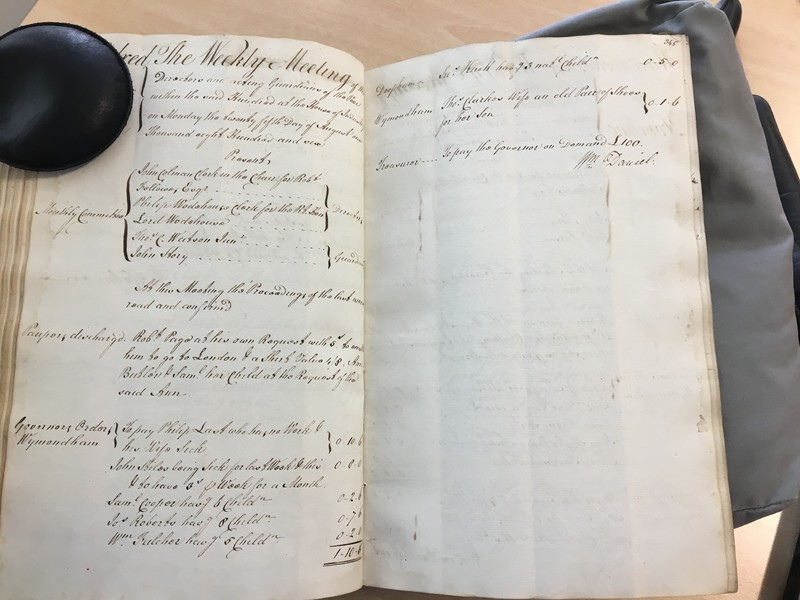 The Weekly Meeting of the
Directors and acting Guardians of the Poor
within the said Hundred at the House of Industry
on Monday the twenty fifth Day of August one
thousand eight Hundred and
Present,
John Colman Clerk in the Chair for Robt
Esqr
Philip Wodehouse Clerk for the Rt Hon
Lord Wodehouse
Directors
Monthly Committee
Thos C. Watson Junr
John Story
Guardians
At this Meeting the Proceedings of the last were
read and confirm'd
Paupers discharged. Robt Page at his own Request with 5s to
him to go to London & a Shirt Value 4/8. Ann
& Saml her Child at the Request of the
said Ann
Governors Orders
Wymondham
To pay Philip Last who has no Work &
his Wife Sick
0-10-6
John Stiles being Sick for last Week & this
& to have Week for a Month
Saml Cooper havg 6 Childn 0-2-
Jos Roberts havg 8 Childn 0-7-6
Wm Fulcher havg 5 Childn 0-2-
1-10-6
345
havg 3 nat Childn 0-5-0
Wymondham Thos Clarkes Wife an old Pair of Shoes
for her Son
0-1-6
Treasurer To pay the Governor on Demand £100.
Wm Daniel